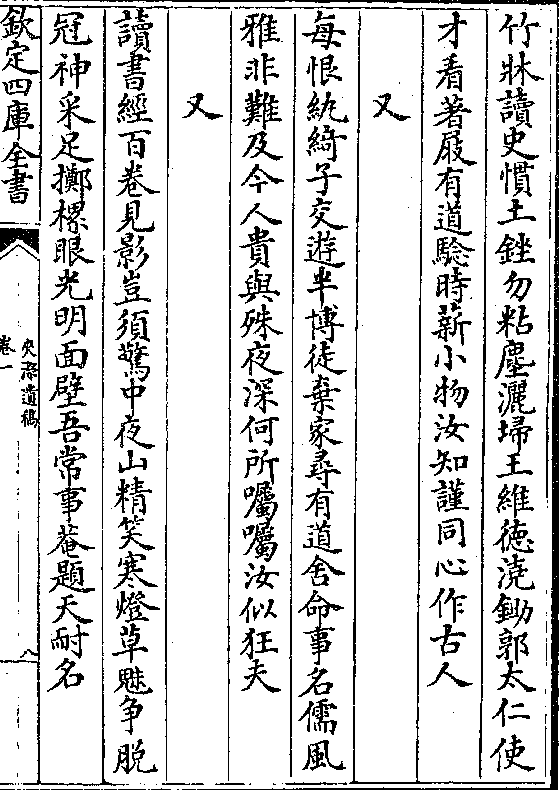 竹牀讀史慣土銼勿粘塵灑埽王維徳澆鋤郭太仁使
才看著屐有道騐時薪小物汝知謹同心作古人
又
每恨紈綺子交遊半博徒棄家尋有道舍命事名儒風
雅非難及今人貴與殊夜深何所囑囑汝似狂夫
又
讀書經百卷見影豈須驚中夜山精笑寒燈草魅争脫
冠神采足擲樏眼光明面壁吾常事菴題天耐名
欽定四庫全書
夾漈遺稿
卷一